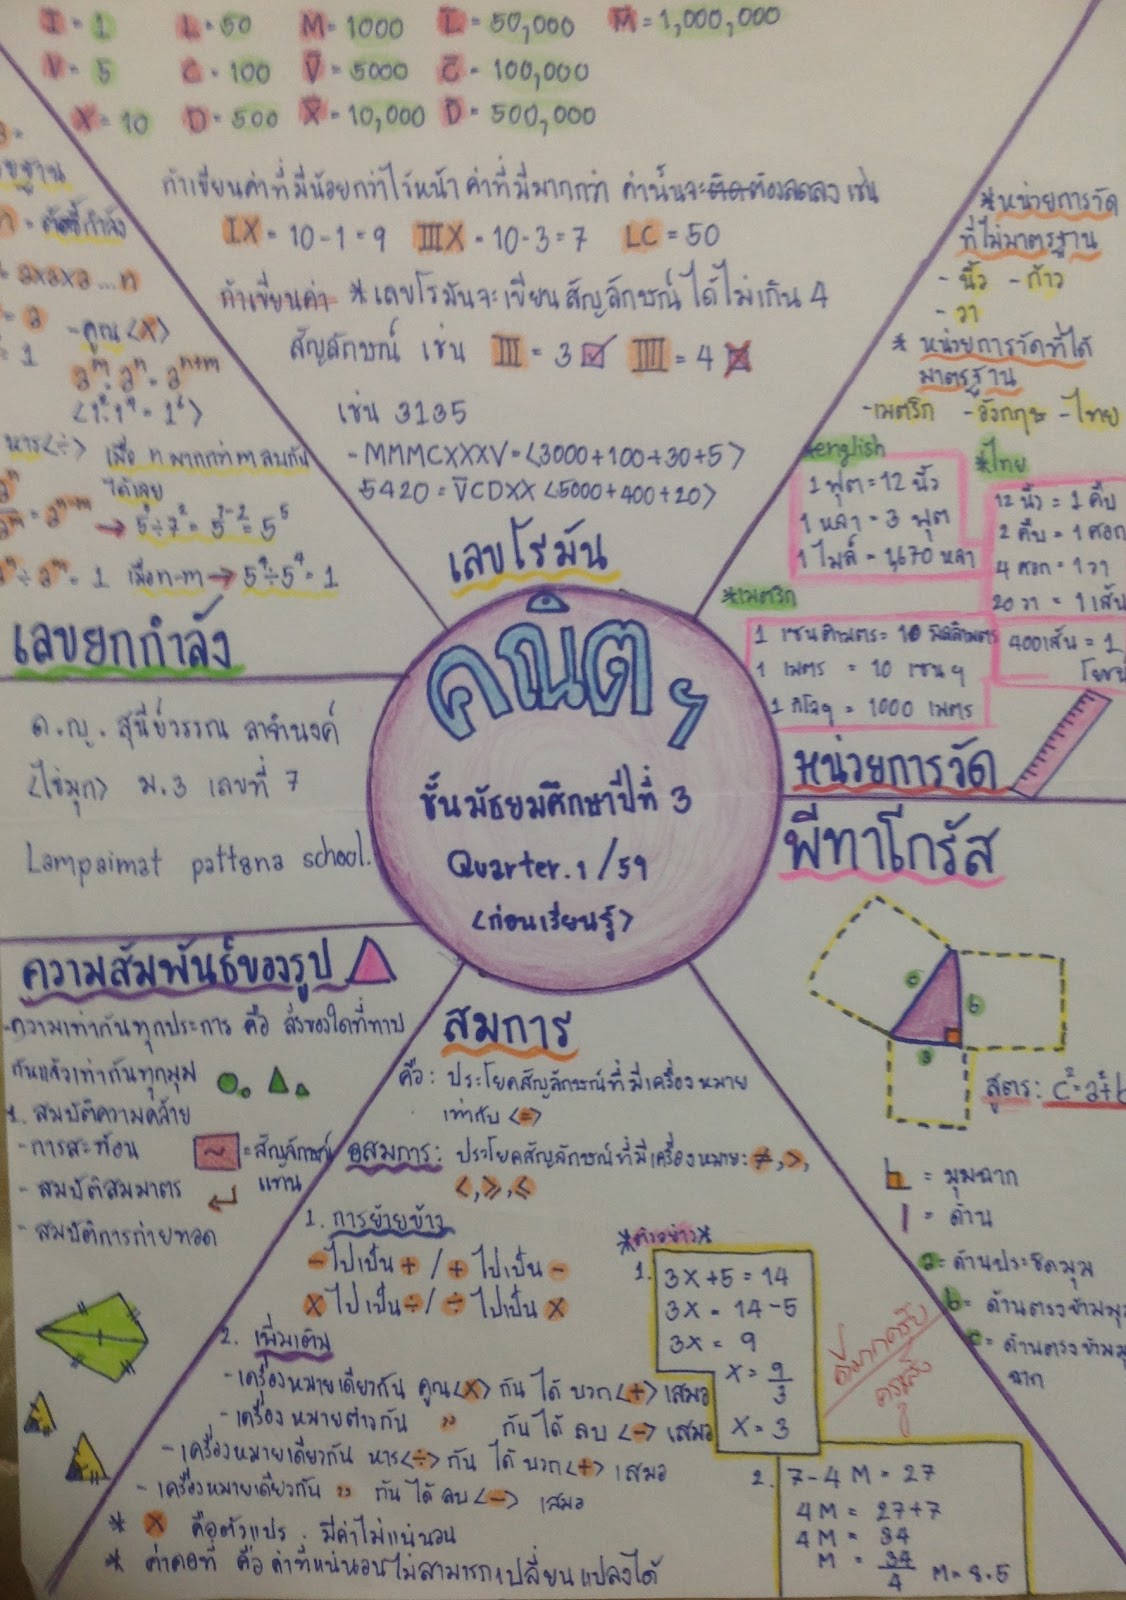 I = 1 L = 50 M = 1000 L̄ = 50,000 M̄ = 1,000,000
V = 5 C = 100 V̄ = 5000 C̄ = 100,000
X = 10 D = 500 X̄ = 10,000 D̄ = 500,000
ถ้าเขียนค่าที่มีน้อยกว่าไว้หน้า ค่าที่มีมากกว่า ค่านั้นจะติดต้องลดลง เช่น
IX = 10-1 = 9 IIIX = 10-3 = 7 LC = 50
ถ้าเขียนค่า * เลขโรมันจะเขียนสัญลักษณ์ได้ไม่เกิน 4
สัญลักษณ์ เช่น III = 3 IIII = 4
เช่น 3135
- MMMCXXXV = <3000+100+30+5>
5420 = V̄CDXX <5000+400+20>
เลขโรมัน
กำลัง
axaxa...n
= a - คูณ <x>
= 1 aᵐ·aⁿ = aⁿ⁺ᵐ
หาร <÷> เมื่อ n มากกว่า m ลบกัน
ได้เลย
= aⁿ⁻ᵐ → 5⁷÷7² = 5⁷⁻² = 5⁵
aⁿ ÷ aᵐ = 1 เมื่อ n=m → 5⁴÷5⁴ = 1
เลขยกกำลัง
*หน่วยการวัด
ที่ไม่มาตรฐาน
- นิ้ว - ก้าว
- วา
* หน่วยการวัดที่ได้
มาตรฐาน
- เมตริก - อังกฤษ - ไทย
*english
1 ฟุต = 12 นิ้ว
1 หลา = 3 ฟุต
1 ไมล์ = 1,670 หลา
*ไทย
12 นิ้ว = 1 คืบ
2 คืบ = 1 ศอก
4 ศอก = 1 วา
20 วา = 1 เส้น
400 เส้น = 1
โยชน์
*เมตริก
1 เซนติเมตร = 10 มิลลิเมตร
1 เมตร = 10 เซนฯ
1 กิโลฯ = 1000 เมตร
หน่วยการวัด
คณิตฯ
ชั้นมัธยมศึกษาปีที่ 3
Quarter.1/59
<ก่อนเรียนรู้>
ด.ญ.
<ไข่มุก> ม.3 เลขที่ 7
Lampaimat pattana school.
พีทาโกรัส
c
b
a
สูตร: c² = a²+b
= มุมฉาก
| = ด้าน
a = ด้านประชิดมุม
b = ด้านตรงข้ามมุม
c = ด้านตรงข้ามมุม
ฉาก
ความสัมพันธ์ของรูป
- ความเท่ากันทุกประการ คือ สิ่งของใดที่ทาบ
กันแล้วเท่ากันทุกมุม
1. สมบัติความคล้าย
- การสะท้อน ~ = สัญลักษณ์
- สมบัติสมมาตร แทน
- สมบัติการถ่ายทอด
สมการ
คือ: ประโยคสัญลักษณ์ที่มีเครื่องหมาย
เท่ากับ <=>
อสมการ: ประโยคสัญลักษณ์ที่มีเครื่องหมาย: ≠, >,
<, ≥, ≤
1. การย้ายข้าง
- ไปเป็น + / + ไปเป็น -
x ไปเป็น ÷ / ÷ ไปเป็น x
2. เพิ่มเติม
- เครื่องหมายเดียวกัน คูณ <x> กัน ได้ บวก <+> เสมอ
- เครื่องหมายต่างกัน " กันได้ ลบ <-> เสมอ
- เครื่องหมายเดียวกัน หาร <÷> กัน ได้ บวก <+> เสมอ
- เครื่องหมายเดียวกัน " กันได้ ลบ <-> เสมอ
* x คือตัวแปร มีค่าไม่แน่นอน
* ค่าคงที่ คือ ค่าที่แน่นอนไม่สามารถเปลี่ยนแปลงได้
*ตัวอย่าง*
1. 3x+5 = 14
3x = 14-5
3x = 9
x = 9/3
x = 3
ดีมากครับ
2. 7-4M = 27
4M = 27+7
4M = 34
M = 34/4 M = 8.5